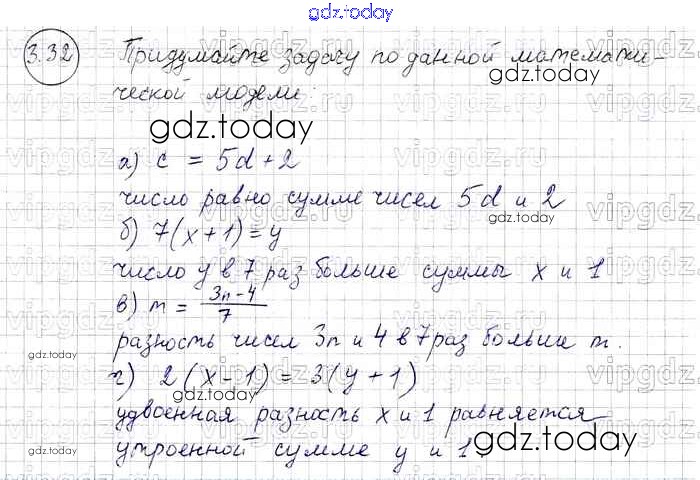 gdz.today
3.32 Придумайте задачу по данной математи-
gdz.today
ческой модели:
gdz.today
а) c = 5d + 2
число равно сумме чисел 5d и 2
gdz.today
б) 7(x + 1) = y
число y в 7 раз больше суммы x и 1
в) m = (3n - 4)/7
разность чисел 3n и 4 в 7 раз больше m.
gdz.today
г) 2(x - 1) = 3(y + 1)
удвоенная разность x и 1 равняется
gdz.today
gdz.today
утроенной сумме y и 1
vipgdz.ru